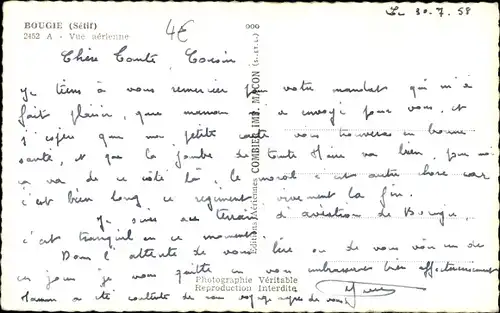 BOUGIE (Sétif)
2452 A - Vue aérienne
4€
Le 30.7.58
Chère Tante, Cousin
Je tiens à vous remercier pour votre mandat qui m'a
fait plaisir, que maman a envoyé pour vous, et
j'espère que ma petite carte vous trouvera en bonne
santé, et que la jambe de tante va bien, pour moi
ça va de ce côté là, le moral c'est autre chose car
c'est bien long ce régiment vivement la fin.
Je suis au terrain d'aviation de Bougie,
c'est tranquil en ce moment.
Dans l'attente de vous lire ou de vous voir un de
ces jours je vous quitte en vous embrassant bien affectueusement
Maman a été contente de son voyage auprès de vous
Editions Aériennes COMBIER IMP. MACON (S.-et-L.)
Photographie Véritable
Reproduction Interdite